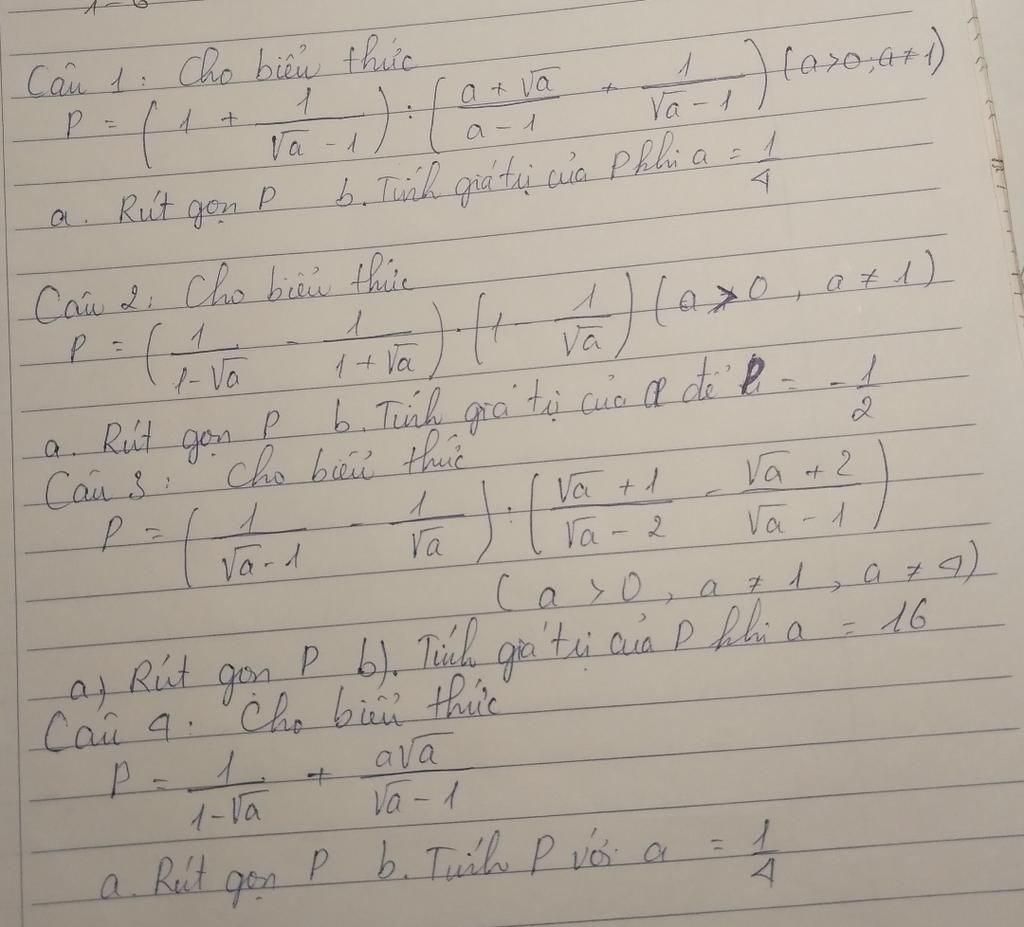 Câu 1: Cho biểu thức
P = (1 + 1/(√a - 1)) : ((a + √a)/(a - 1) + 1/(√a - 1)) (a>0, a≠1)
a. Rút gọn P b. Tính giá trị của P khi a = 1/4
Câu 2: Cho biểu thức
P = (1/(1-√a) - 1/(1+√a)) · (1 - 1/√a) (a > 0, a ≠ 1)
a. Rút gọn P b. Tính giá trị của a để P = -1/2
Câu 3: Cho biểu thức
P = (1/(√a-1) - 1/√a) : ((√a + 1)/(√a - 2) - (√a + 2)/(√a - 1))
(a > 0, a ≠ 1, a ≠ 4)
a) Rút gọn P b). Tính giá trị của P khi a = 16
Câu 4: Cho biểu thức
P = 1/(1-√a) + a√a/(√a - 1)
a. Rút gọn P b. Tính P với a = 1/4